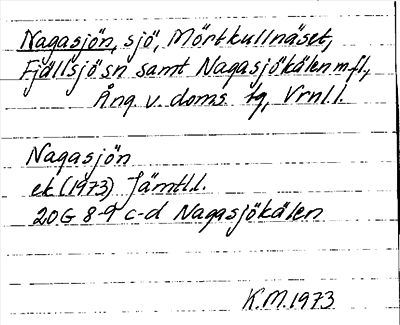 Nagasjön, sjö, Mörtkullnäset,
Fjällsjö sn samt Nagasjökälen m fl,
Ång v. doms. tg, Vrnl l.
Nagasjön
ek (1973) Jämtl l.
20 G 8-9 c-d Nagasjökälen
K.M. 1973